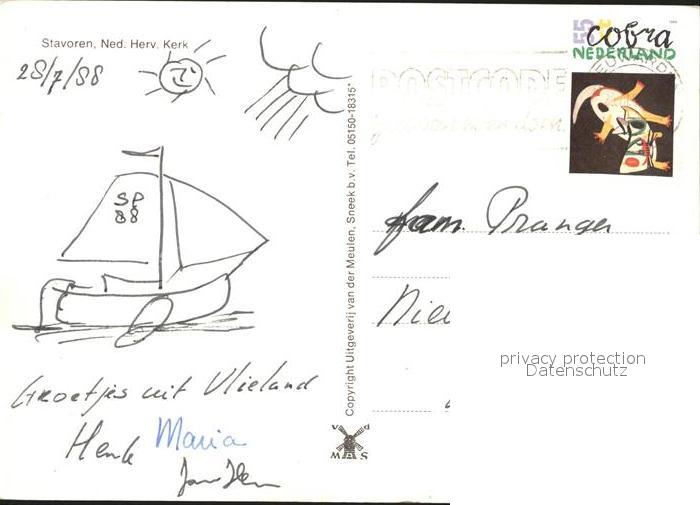 Stavoren, Ned. Herv. Kerk
28/7/88
SP
88
Groetjes uit Vlieland
Henk Maria
Copyright Uitgeverij van der Meulen, Sneek b.v. Tel. 05150-18315*
v d
MAS
55
cobra
NEDERLAND
POSTCODE
fam. Pranger
Nieu
privacy protection
Datenschutz